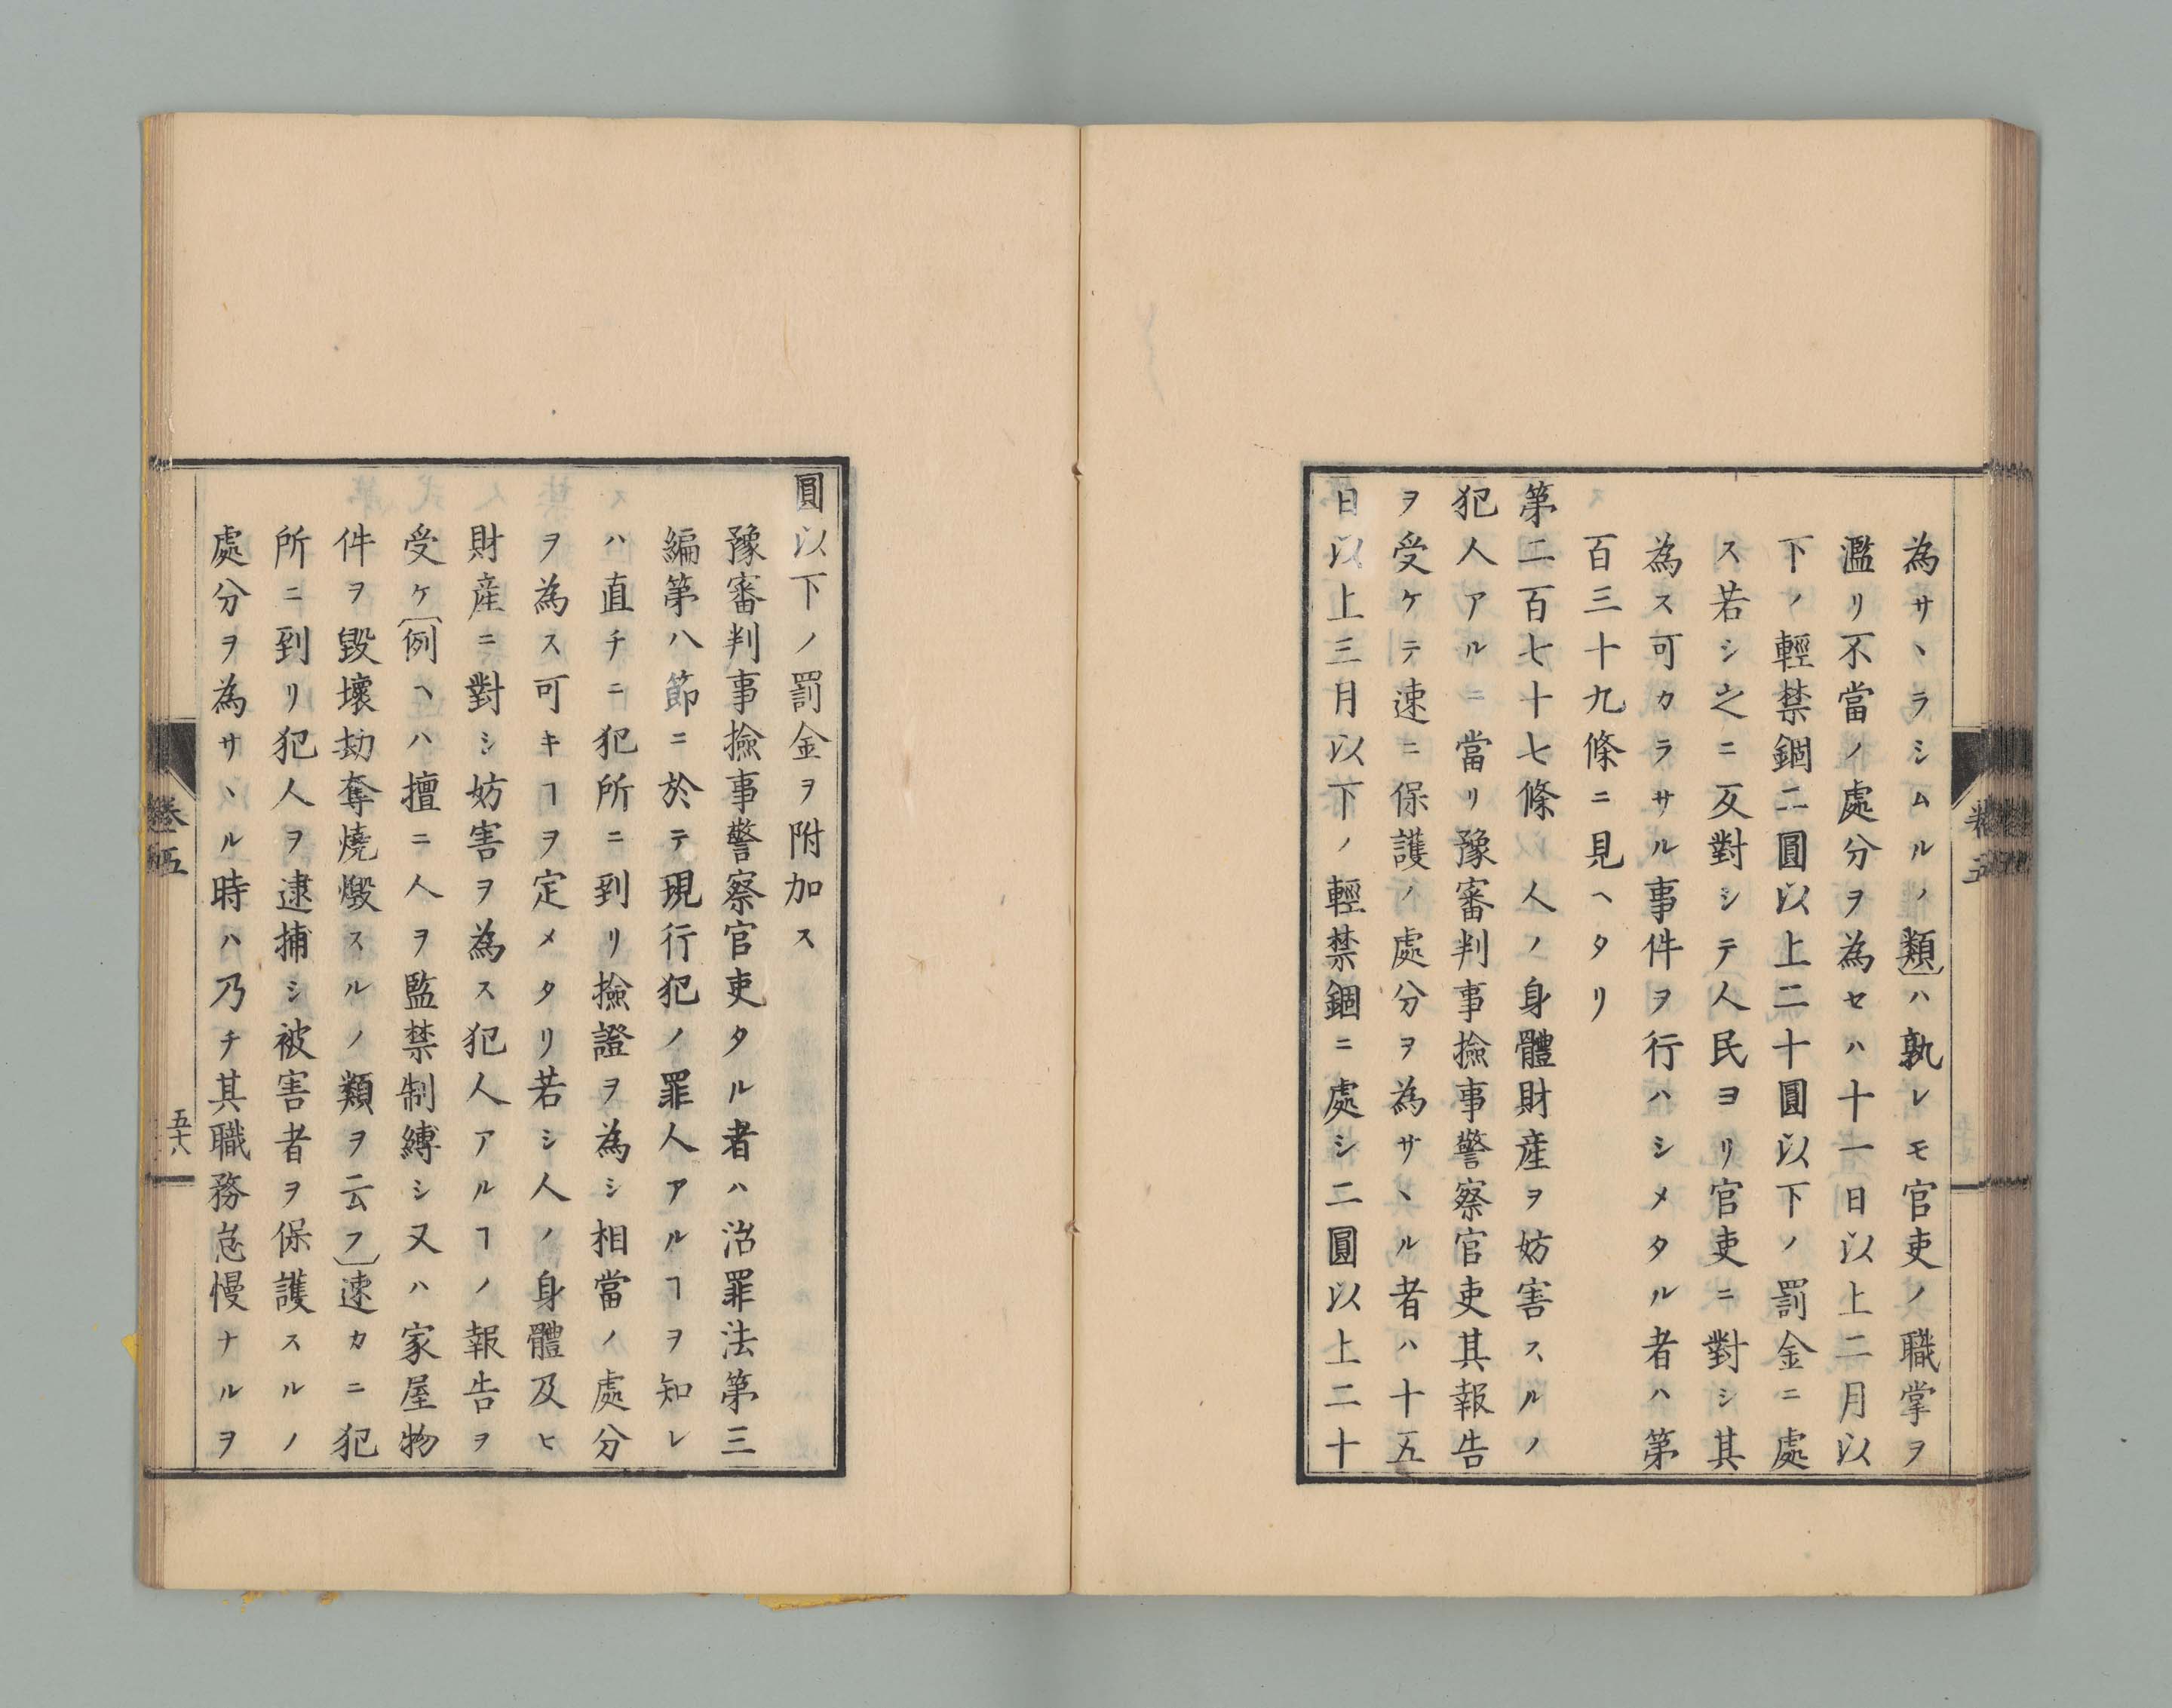 為サヽラシムルノ類〕ハ孰レモ官吏ノ職掌ヲ
濫リ不當ノ處分ヲ為セハ十一日以上二月以
下ノ輕禁錮二圓以上二十圓以下ノ罰金ニ處
ス若シ之ニ反對シテ人民ヨリ官吏ニ對シ其
為ス可カラサル事件ヲ行ハシメタル者ハ第
百三十九條ニ見ヘタリ
第二百七十七條 人ノ身體財産ヲ妨害スルノ
犯人アルニ當リ豫審判事撿事警察官吏其報告
ヲ受ケテ速ニ保護ノ處分ヲ為サヽル者ハ十五
日以上三月以下ノ輕禁錮ニ處シ二圓以上二十
圓以下ノ罰金ヲ附加ス
豫審判事撿事警察官吏タル者ハ治罪法第三
編第八節ニ於テ現行犯ノ罪人アルヿヲ知レ
ハ直チニ犯所ニ到リ撿證ヲ為シ相當ノ處分
ヲ為ス可キヿヲ定メタリ若シ人ノ身體及ヒ
財産ニ對シ妨害ヲ為ス犯人アルヿノ報告ヲ
受ケ〔例ヘハ擅ニ人ヲ監禁制縛シ又ハ家屋物
件ヲ毀壞劫奪燒燬スルノ類ヲ云フ〕速カニ犯
所ニ到リ犯人ヲ逮捕シ被害者ヲ保護スルノ
處分ヲ為サヽル時ハ乃チ其職務怠慢ナルヲ
卷五
五十八